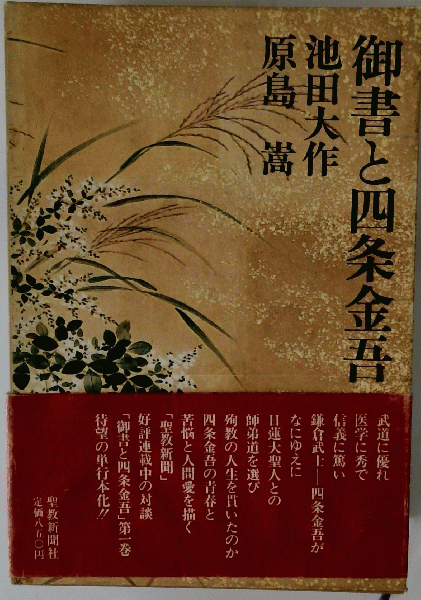 御書と四条金吾
池田大作
原島嵩
武道に優れ
医学に秀で
信義に篤い
鎌倉武士――四条金吾が
なにゆえに
日蓮大聖人との
師弟道を選び
殉教の人生を貫いたのか
四条金吾の青春と
苦悩と人間愛を描く
「聖教新聞」
好評連載中の対談
「御書と四条金吾」第一巻
待望の単行本化!!
聖教新聞社
定価八五〇円